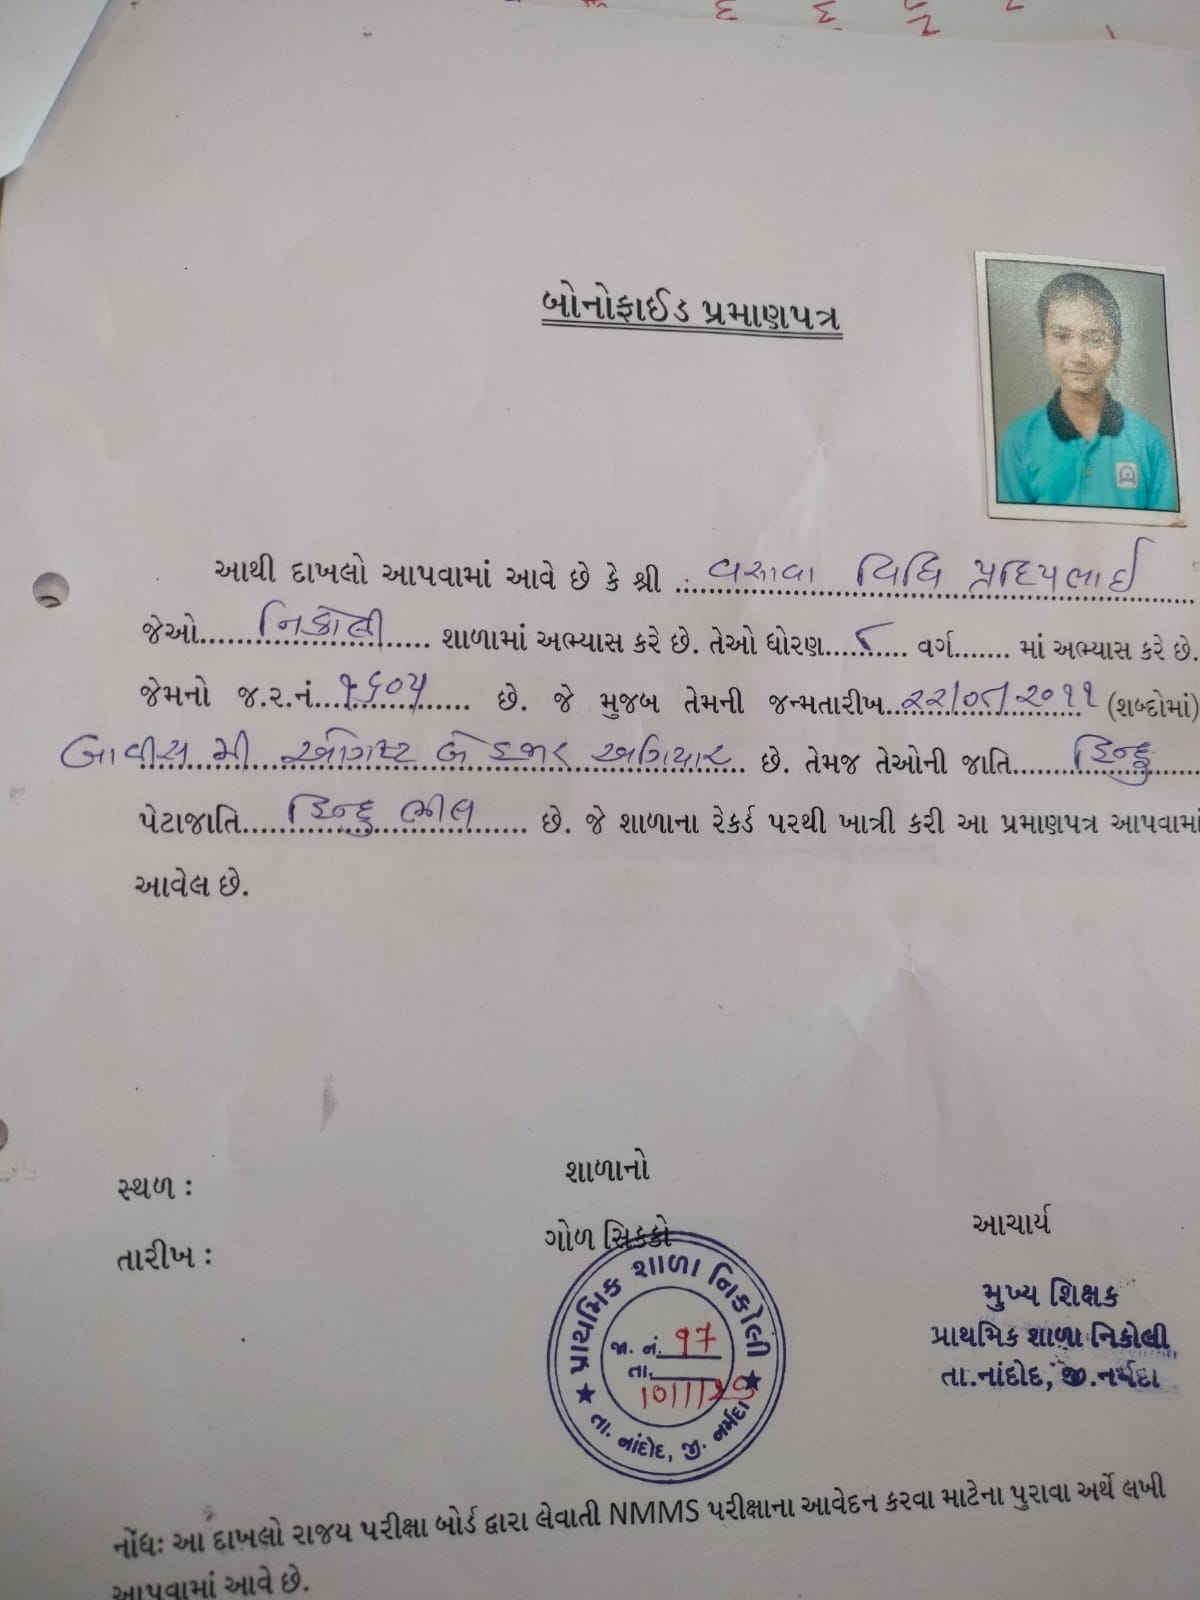 બોનોફાઈડ પ્રમાણપત્ર
આથી દાખલો આપવામાં આવે છે કે શ્રી .વસાવા વિધિ પ્રદિપભાઈ
જેઓ...નિકોલી... શાળામાં અભ્યાસ કરે છે. તેઓ ધોરણ...૮... વર્ગ....... માં અભ્યાસ કરે છે.
જેમનો જ.ર.નં...૧૬૦૫... છે. જે મુજબ તેમની જન્મતારીખ...૨૨/૦૮/૨૦૧૧ (શબ્દોમાં)
બાવીસ મી ઓગષ્ટ બે હજાર અગિયાર... છે. તેમજ તેઓની જાતિ...હિન્દુ...
પેટાજાતિ...હિન્દુ ભીલ... છે. જે શાળાના રેકર્ડ પરથી ખાત્રી કરી આ પ્રમાણપત્ર આપવામાં
આવેલ છે.
સ્થળ :
તારીખ :
શાળાનો
ગોળ સિક્કો
પ્રાથમિક શાળા નિકોલી
જા. નં. 97
તા.
તા. નાંદોદ, જી. નર્મદા
આચાર્ય
મુખ્ય શિક્ષક
પ્રાથમિક શાળા નિકોલી
તા.નાંદોદ, જી.નર્મદા
નોંધઃ આ દાખલો રાજય પરીક્ષા બોર્ડ દ્વારા લેવાતી NMMS પરીક્ષાના આવેદન કરવા માટેના પુરાવા અર્થે લખી
આપવામાં આવે છે.